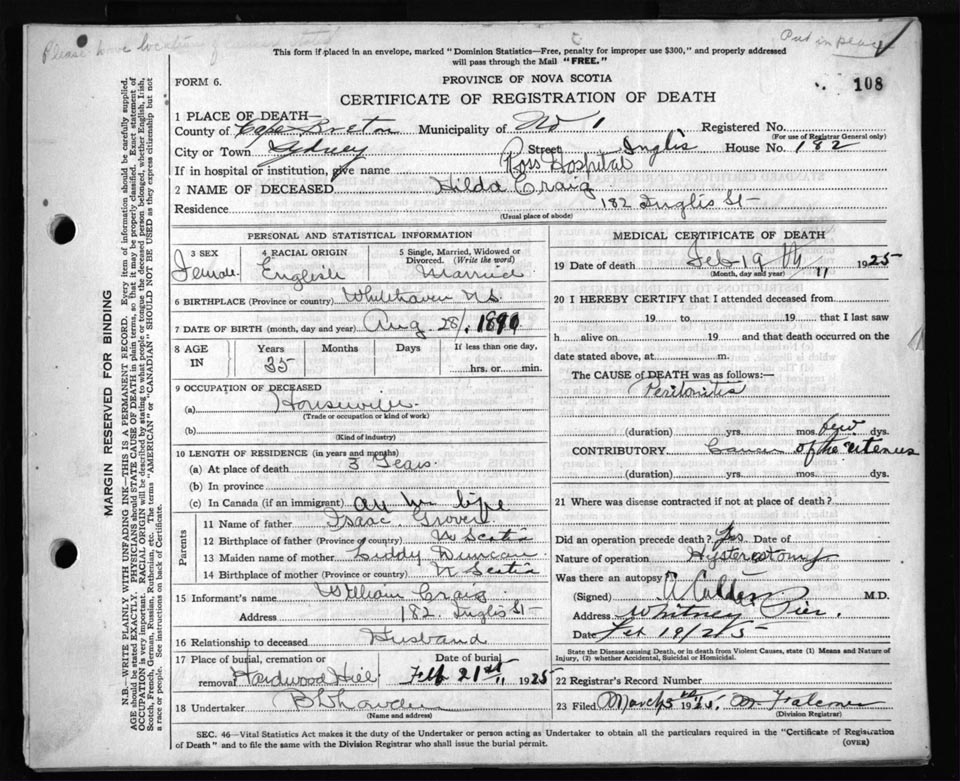 Please have location of cancer stated
Put in place
This form if placed in an envelope, marked "Dominion Statistics—Free, penalty for improper use $300," and properly addressed
will pass through the Mail "FREE."
FORM 6.
PROVINCE OF NOVA SCOTIA
108
CERTIFICATE OF REGISTRATION OF DEATH
1 PLACE OF DEATH—
County of Cape Breton Municipality of No 1 Registered No.
(For use of Registrar General only)
City or Town Sydney Street Inglis House No. 182
If in hospital or institution, give name Ross Hospital
2 NAME OF DECEASED Hilda Craig
Residence 182 Inglis St
(Usual place of abode)
PERSONAL AND STATISTICAL INFORMATION
3 SEX Female
4 RACIAL ORIGIN English
5 Single, Married, Widowed or Divorced. (Write the word) Married
6 BIRTHPLACE (Province or country) Whitehaven N.S.
7 DATE OF BIRTH (month, day and year) Aug. 28/. 1890
8 AGE IN Years 35 Months Days If less than one day, hrs. or min.
9 OCCUPATION OF DECEASED
(a) Housewife
(Trade or occupation or kind of work)
(b)
(Kind of industry)
10 LENGTH OF RESIDENCE (in years and months)
(a) At place of death 3 Years
(b) In province
(c) In Canada (if an immigrant) all her life
Parents
11 Name of father Isaac Grover
12 Birthplace of father (Province or country) N Scotia
13 Maiden name of mother Liddy Duncan
14 Birthplace of mother (Province or country) N Scotia
15 Informant's name William Craig
Address 182 Inglis St
16 Relationship to deceased Husband
17 Place of burial, cremation or removal Hardwood Hill Date of burial Feb 21st 1925
18 Undertaker
(Name and address)
MEDICAL CERTIFICATE OF DEATH
19 Date of death Feb 19th 1925
(Month, day and year)
20 I HEREBY CERTIFY that I attended deceased from
19 to 19 that I last saw
h alive on 19 and that death occurred on the
date stated above, at m.
The CAUSE of DEATH was as follows:—
Peritonitis
(duration) yrs. mos. few dys.
CONTRIBUTORY Cancer of the uterus
(duration) yrs. mos. dys.
21 Where was disease contracted if not at place of death?
Did an operation precede death? Yes Date of
Nature of operation Hysterectomy
Was there an autopsy
(Signed) A Calder M.D.
Address Whitney Pier.
Date Feb 19/25
State the Disease causing Death, or in death from Violent Causes, state (1) Means and Nature of
Injury, (2) whether Accidental, Suicidal or Homicidal.
22 Registrar's Record Number
23 Filed March 5th 1925.
(Division Registrar)
SEC. 46—Vital Statistics Act makes it the duty of the Undertaker or person acting as Undertaker to obtain all the particulars required in the "Certificate of Registration
of Death" and to file the same with the Division Registrar who shall issue the burial permit.
(OVER)
MARGIN RESERVED FOR BINDING
N.B.—WRITE PLAINLY WITH UNFADING INK—THIS IS A PERMANENT RECORD. Every item of information should be carefully supplied.
AGE should be stated EXACTLY. PHYSICIANS should STATE CAUSE OF DEATH in plain terms, so that it may be properly classified. Exact statement of
OCCUPATION is very important. RACIAL ORIGIN will be described by stating to what people or tongue the deceased person belonged, whether English, Irish,
Scotch, French, German, Russian, Ruthenian, etc. The terms "AMERICAN" or "CANADIAN" SHOULD NOT BE USED as they express citizenship but not
a race or people. See instructions on back of Certificate.